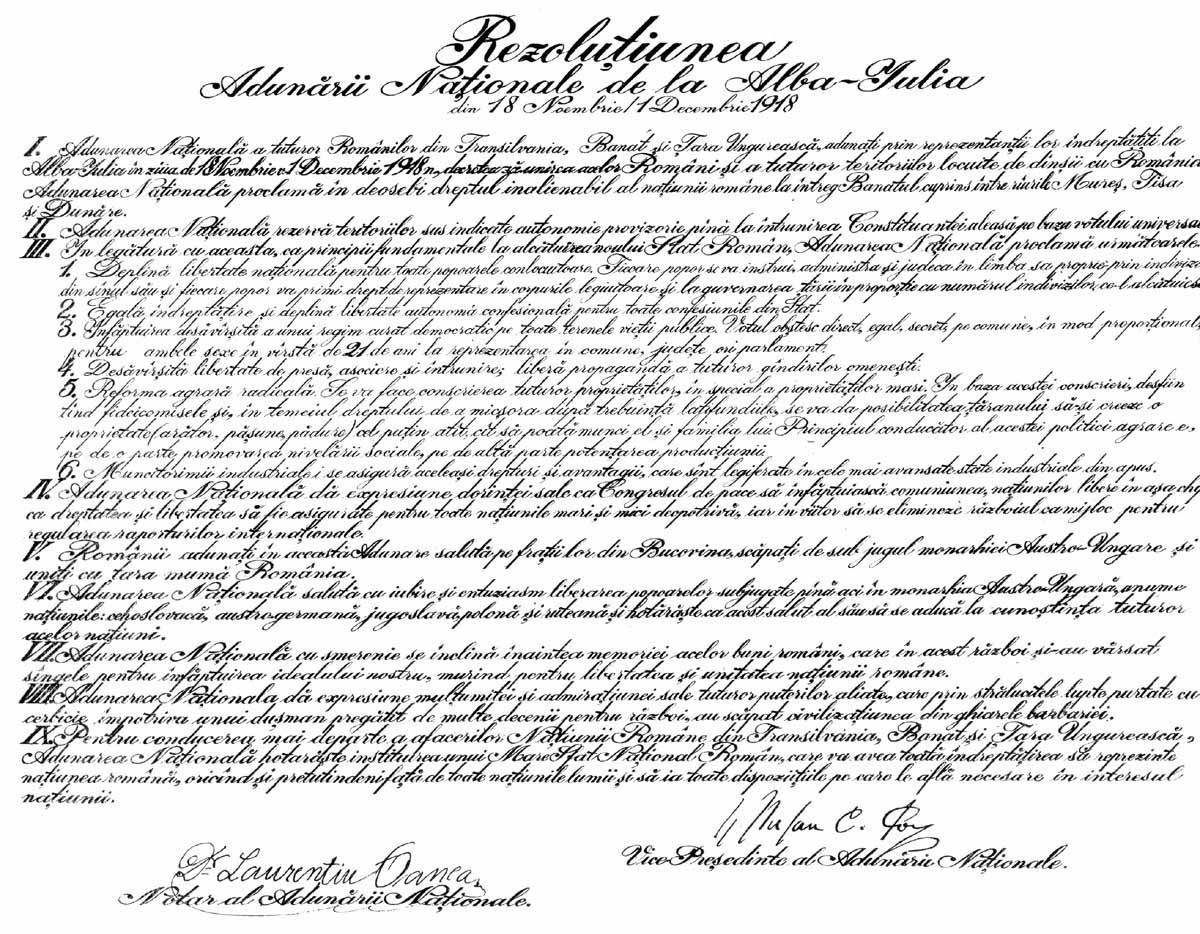 Rezoluțiunea
Adunării Naționale de la Alba-Iulia
din 18 Noembrie/1 Decembrie 1918
I. Adunarea Națională a tuturor Românilor din Transilvania, Banat și Țara Ungurească, adunați prin reprezentanții lor îndreptățiți la
Alba-Iulia în ziua de 18 Noembrie v. 1 Decembrie 1918 n., decretează unirea acelor Români și a tuturor teritoriilor locuite de dînșii cu România
Adunarea Națională proclamă în deosebi dreptul inalienabil al națiunii române la întreg Banatul cuprins între rîurile Mureș, Tisa
și Dunăre.
II. Adunarea Națională rezervă teritoriilor sus indicate autonomie provizorie pînă la întrunirea Constituantei aleasă pe baza votului universa
III. În legătură cu aceasta, ca principii fundamentale la alcătuirea noului Stat Român, Adunarea Națională proclamă următoarele
1. Deplină libertate națională pentru toate popoarele conlocuitoare. Fiecare popor se va instrui, administra și judeca în limba sa proprie prin indivizi
din sînul său și fiecare popor va primi drept de reprezentare în corpurile legiuitoare și la guvernarea țării în proporție cu numărul indivizilor ce-l alcătuiesc
2. Egală îndreptățire și deplină libertate autonomă confesională pentru toate confesiunile din Stat.
3. Înfăptuirea desăvîrșită a unui regim curat democratic pe toate terenele vieții publice. Votul obștesc direct, egal, secret, pe comune, în mod proporțional,
pentru ambele sexe în vîrstă de 21 de ani la reprezentarea în comune, județe ori parlament.
4. Desăvîrșită libertate de presă, asociere și întrunire; liberă propagandă a tuturor gîndirilor omenești.
5. Reforma agrară radicală. Se va face conscrierea tuturor proprietăților, în special a proprietăților mari. În baza acestei conscrieri, desfiin
țînd fideicomisele și, în temeiul dreptului de a micșora după trebuință latifundiile, se va da posibilitatea țăranului să-și creeze o
proprietate (arător, pășune, pădure) cel puțin atît cît să poată munci el și familia lui. Principiul conducător al acestei politici agrare e,
pe de o parte promovarea nivelării sociale, pe de altă parte potențarea producțiunii.
6. Muncitorimii industriale i se asigură aceleași drepturi și avantagii, care sînt legiferate în cele mai avansate state industriale din apus.
IV. Adunarea Națională dă expresiune dorinței sale ca Congresul de pace să înfăptuiască comuniunea, națiunilor libere în așa chip
ca dreptatea și libertatea să fie asigurate pentru toate națiunile mari și mici deopotrivă, iar în viitor să se elimineze războiul ca mijloc pentru
regularea raporturilor internaționale.
V. Românii adunați în această Adunare salută pe frații lor din Bucovina, scăpați de sub jugul monarhiei Austro-Ungare și
uniți cu țara mumă România.
VI. Adunarea Națională salută cu iubire și entuziasm liberarea popoarelor subjugate pînă aci în monarhia Austro-Ungară, anume
națiunile: cehoslovacă, austro-germană, jugoslavă, polonă și ruteană și hotărăște ca acest salut al său să se aducă la cunoștința tuturor
acelor națiuni.
VII. Adunarea Națională cu smerenie se închină înaintea memoriei acelor buni români, care în acest război și-au vărsat
sîngele pentru înfăptuirea idealului nostru, murind pentru libertatea și unitatea națiunii române.
VIII. Adunarea Naționala dă expresiune mulțumitei și admirațiunei sale tuturor puterilor aliate, care prin strălucitele lupte purtate cu
cerbicie împotriva unui dușman pregătit de multe decenii pentru război, au scăpat civilizațiunea din ghiarele barbariei.
IX. Pentru conducerea mai departe a afacerilor Națiunii Române din Transilvania, Banat și Țara Ungurească,
Adunarea Națională hotărăște instituirea unui Mare Sfat Național Român, care va avea toată îndreptățirea să reprezinte
națiunea română, oricînd și pretutindeni față de toate națiunile lumii și să ia toate dispozițiile pe care le află necesare în interesul
națiunii.
Vice Președinte al Adunării Naționale.
Dr. Laurențiu Oanea
Notar al Adunării Naționale.